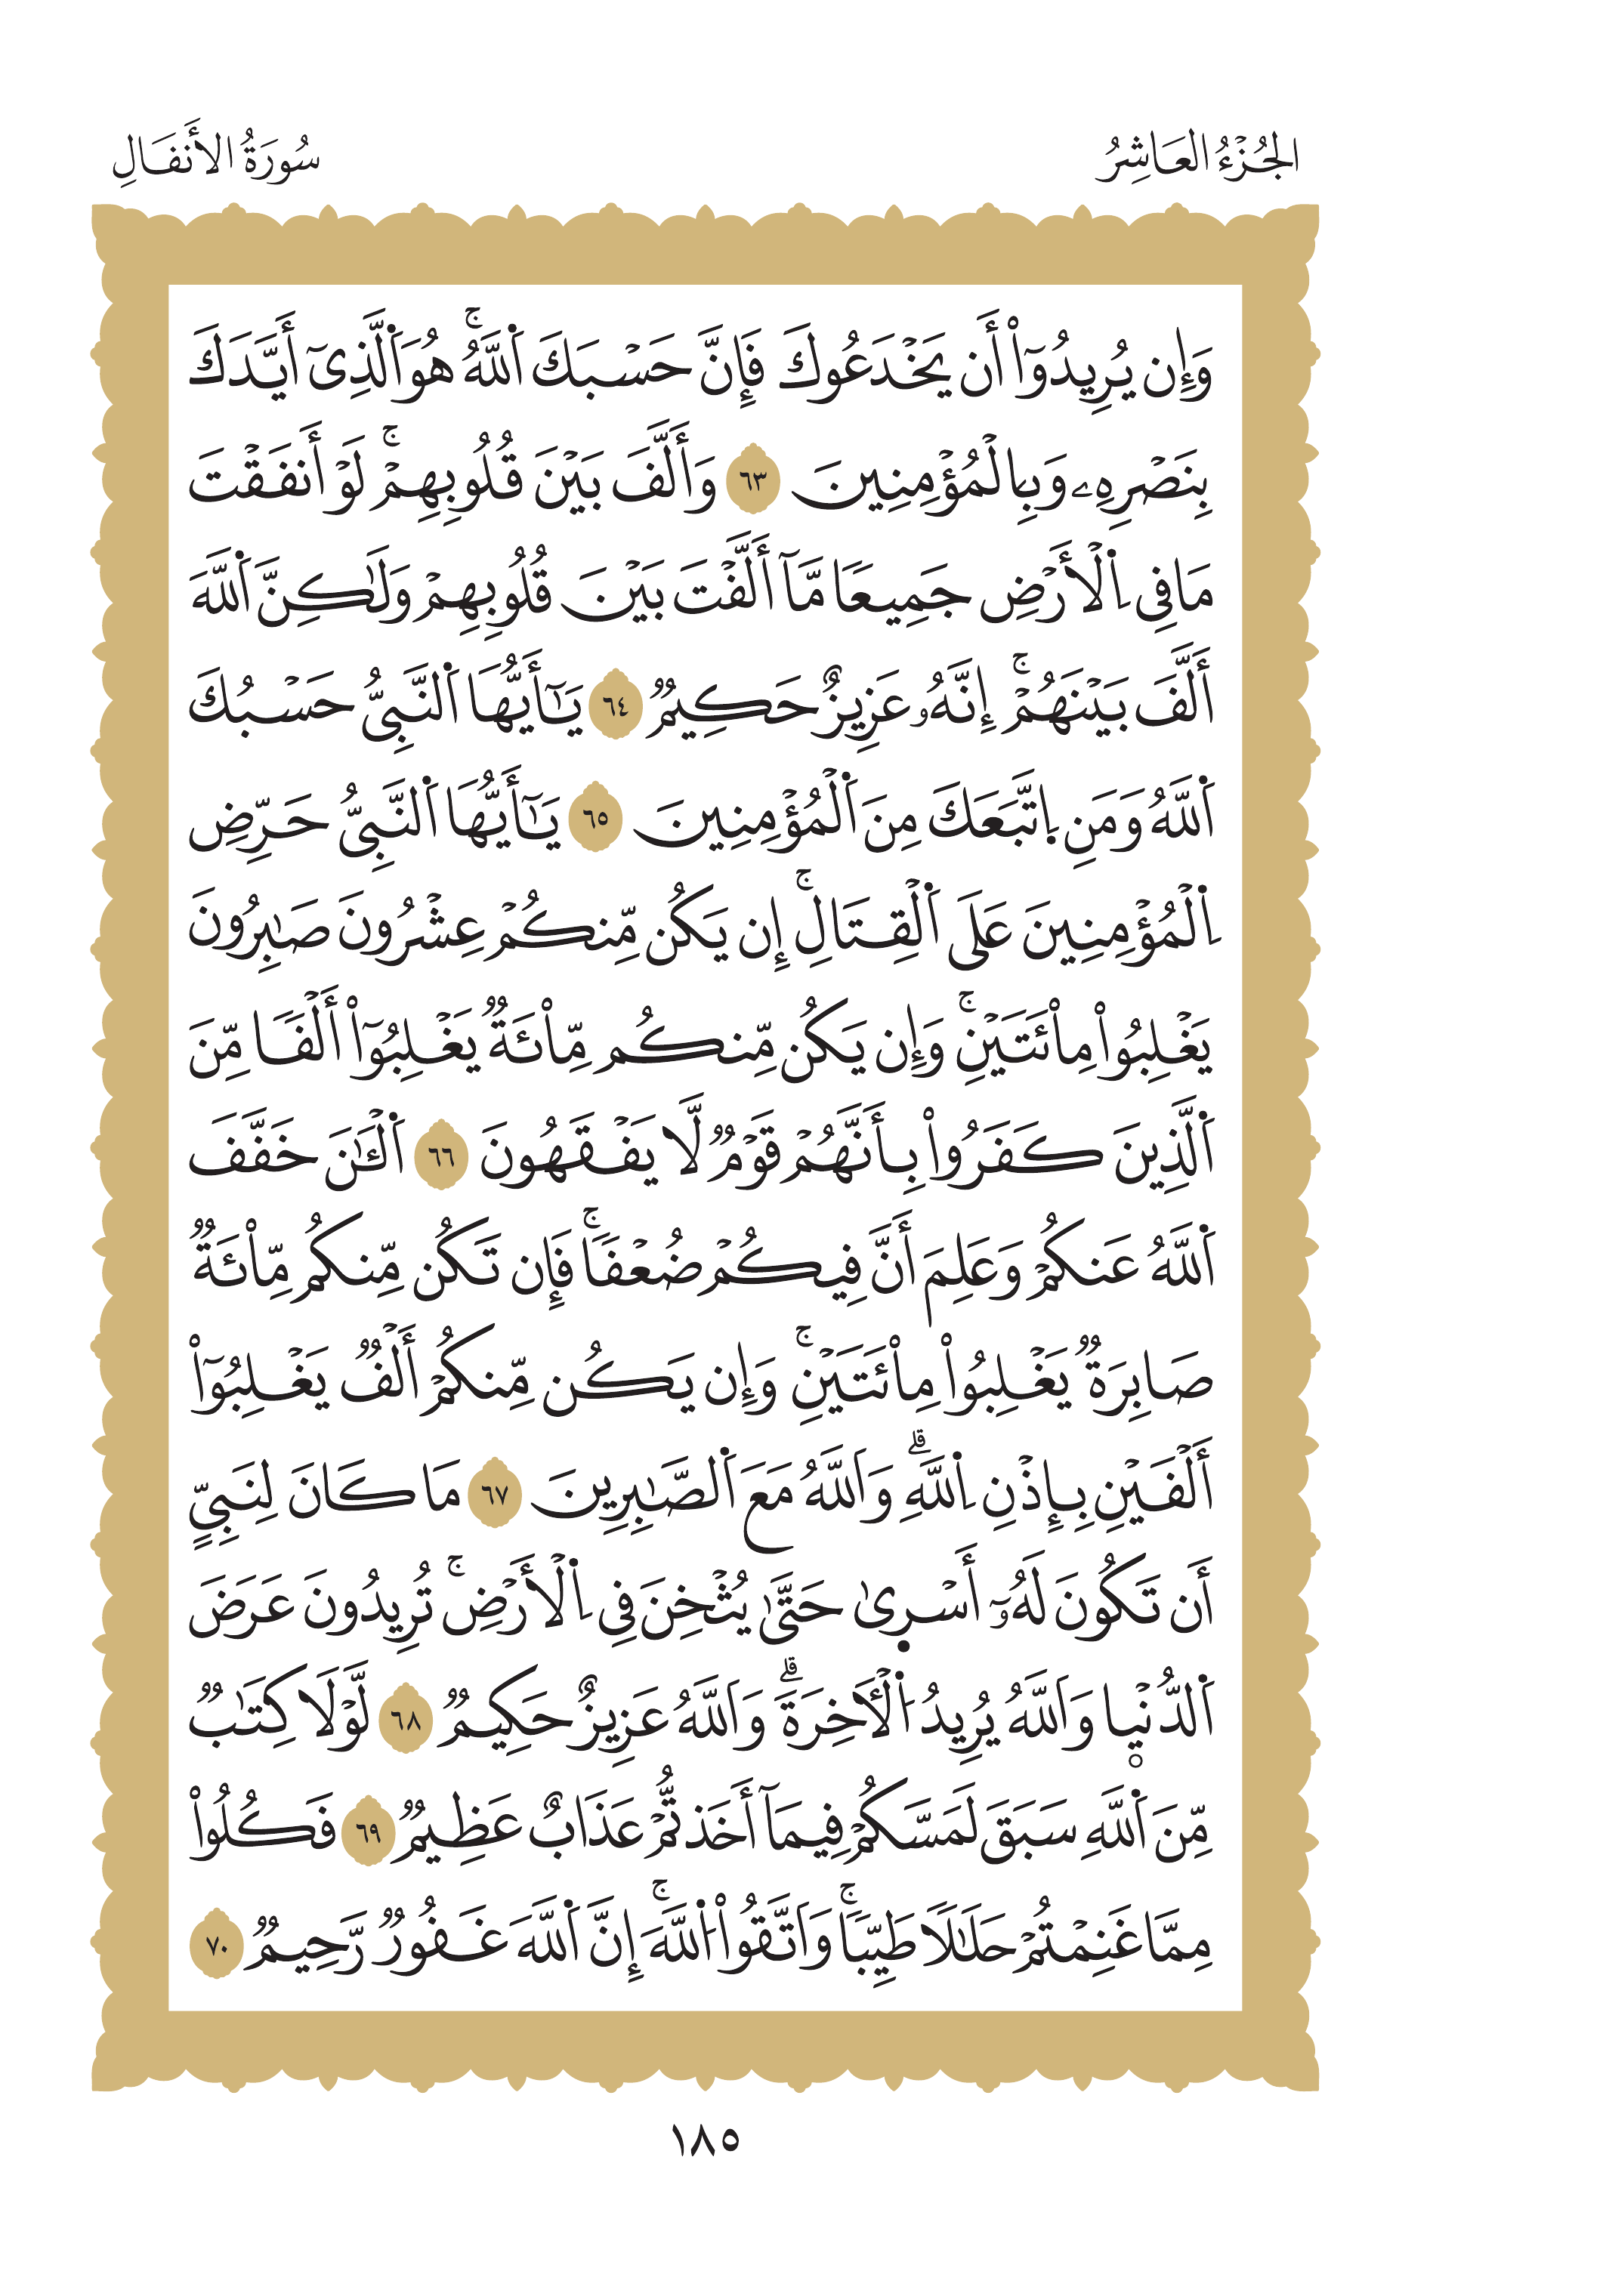 الجُزْءُ العَاشِرُ
سُورَةُ الأَنفَالِ
وَإِن يُرِيدُوٓاْ أَن يَخْدَعُوكَ فَإِنَّ حَسْبَكَ اَ۬للَّهُۖ هُوَ اَ۬لَّذِىٓ أَيَّدَكَ
بِنَصْرِهِۦ وَبِالْمُؤْمِنِينَ ٦٣ وَأَلَّفَ بَيْنَ قُلُوبِهِمْۚ لَوْ أَنفَقْتَ
مَا فِى اِ۬لْأَرْضِ جَمِيعًا مَّآ أَلَّفْتَ بَيْنَ قُلُوبِهِمْ وَلَٰكِنَّ اَ۬للَّهَ
أَلَّفَ بَيْنَهُمْۚ إِنَّهُۥ عَزِيزٌ حَكِيمٌ ٦٤ يَٰٓأَيُّهَا اَ۬لنَّبِىُّ حَسْبُكَ
اَ۬للَّهُ وَمَنِ اِ۪تَّبَعَكَ مِنَ اَ۬لْمُؤْمِنِينَ ٦٥ يَٰٓأَيُّهَا اَ۬لنَّبِىُّ حَرِّضِ
اِ۬لْمُؤْمِنِينَ عَلَى اَ۬لْقِتَالِۚ إِن يَكُن مِّنكُمْ عِشْرُونَ صَٰبِرُونَ
يَغْلِبُواْ مِاْئَتَيْنِۚ وَإِن يَكُن مِّنكُم مِّاْئَةٌ يَغْلِبُوٓاْ أَلْفًا مِّنَ
اَ۬لَّذِينَ كَفَرُواْ بِأَنَّهُمْ قَوْمٌ لَّا يَفْقَهُونَ ٦٦ اَ۬لْـَٰٔنَ خَفَّفَ
اَ۬للَّهُ عَنكُمْ وَعَلِمَ أَنَّ فِيكُمْ ضُعْفًاۚ فَإِن تَكُن مِّنكُم مِّاْئَةٌ
صَابِرَةٌ يَغْلِبُواْ مِاْئَتَيْنِۚ وَإِن يَكُن مِّنكُمْ أَلْفٌ يَغْلِبُوٓاْ
أَلْفَيْنِ بِإِذْنِ اِ۬للَّهِۗ وَاَللَّهُ مَعَ اَ۬لصَّٰبِرِينَ ٦٧ مَا كَانَ لِنَبِىٍّ
أَن تَكُونَ لَهُۥٓ أَسْر۪ىٰ حَتَّىٰ يُثْخِنَ فِى اِ۬لْأَرْضِۚ تُرِيدُونَ عَرَضَ
اَ۬لدُّنْيا وَاَللَّهُ يُرِيدُ اُ۬لْأٓخِرَةَۗ وَاَللَّهُ عَزِيزٌ حَكِيمٌ ٦٨ لَّوْلَا كِتَٰبٌ
مِّنَ اَ۬للَّهِ سَبَقَ لَمَسَّكُمْ فِيمَآ أَخَذتُّمْ عَذَابٌ عَظِيمٌ ٦٩ فَكُلُواْ
مِمَّا غَنِمْتُمْ حَلَٰلًا طَيِّبًاۚ وَاَتَّقُواْ اُ۬للَّهَۚ إِنَّ اَ۬للَّهَ غَفُورٌ رَّحِيمٌ ٧٠
١٨٥